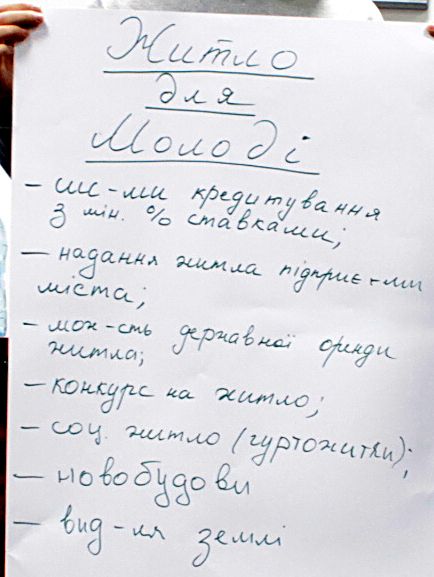 Житло
для
Молоді
- сис-ми кредитування
з мін. % ставками;
- надання житла підприє-ми
міста;
- мож-сть державної оренди
житла;
- конкурс на житло;
- соц. житло (гуртожитки);
- новобудови
- вид-ля землі